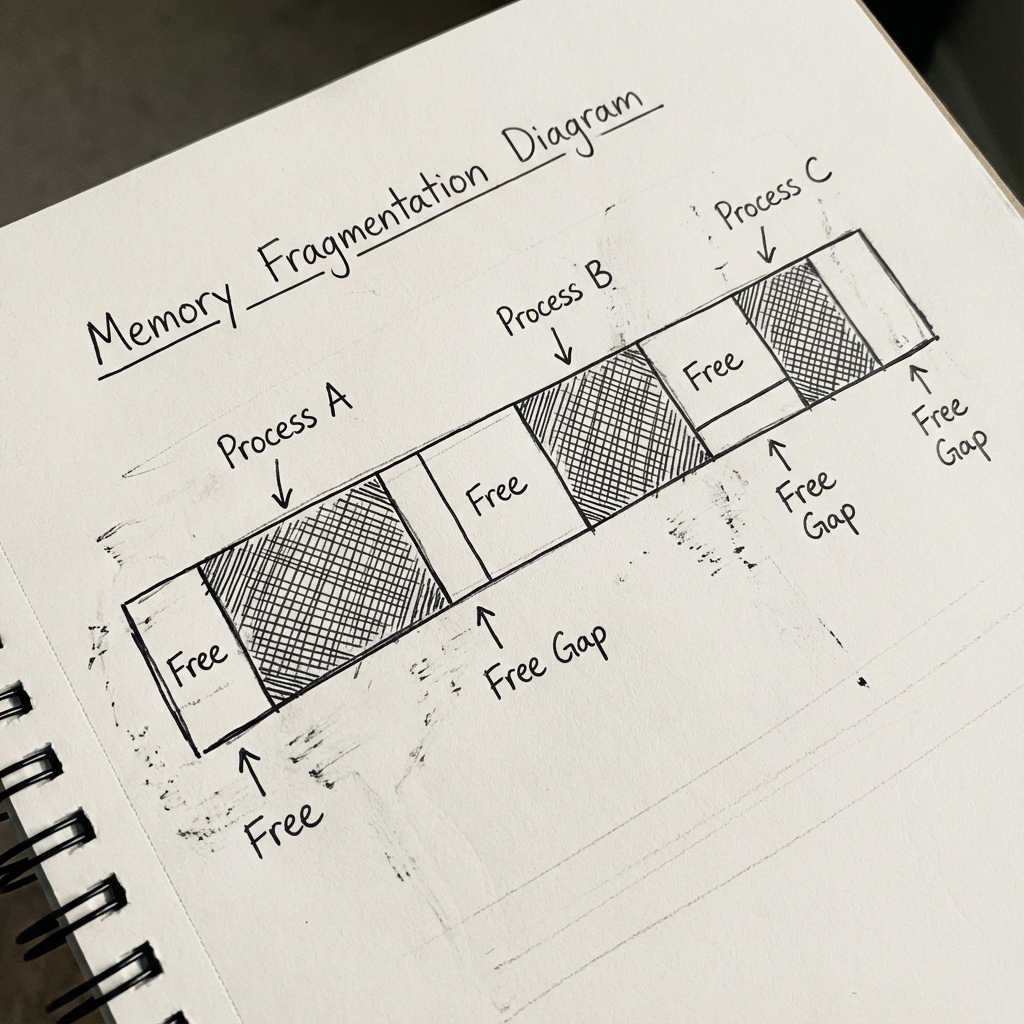 Memory Fragmentation Diagram
Process A
Process B
Process C
Free
Free
Free
Free
Free Gap
Free
Gap
Free
Gap